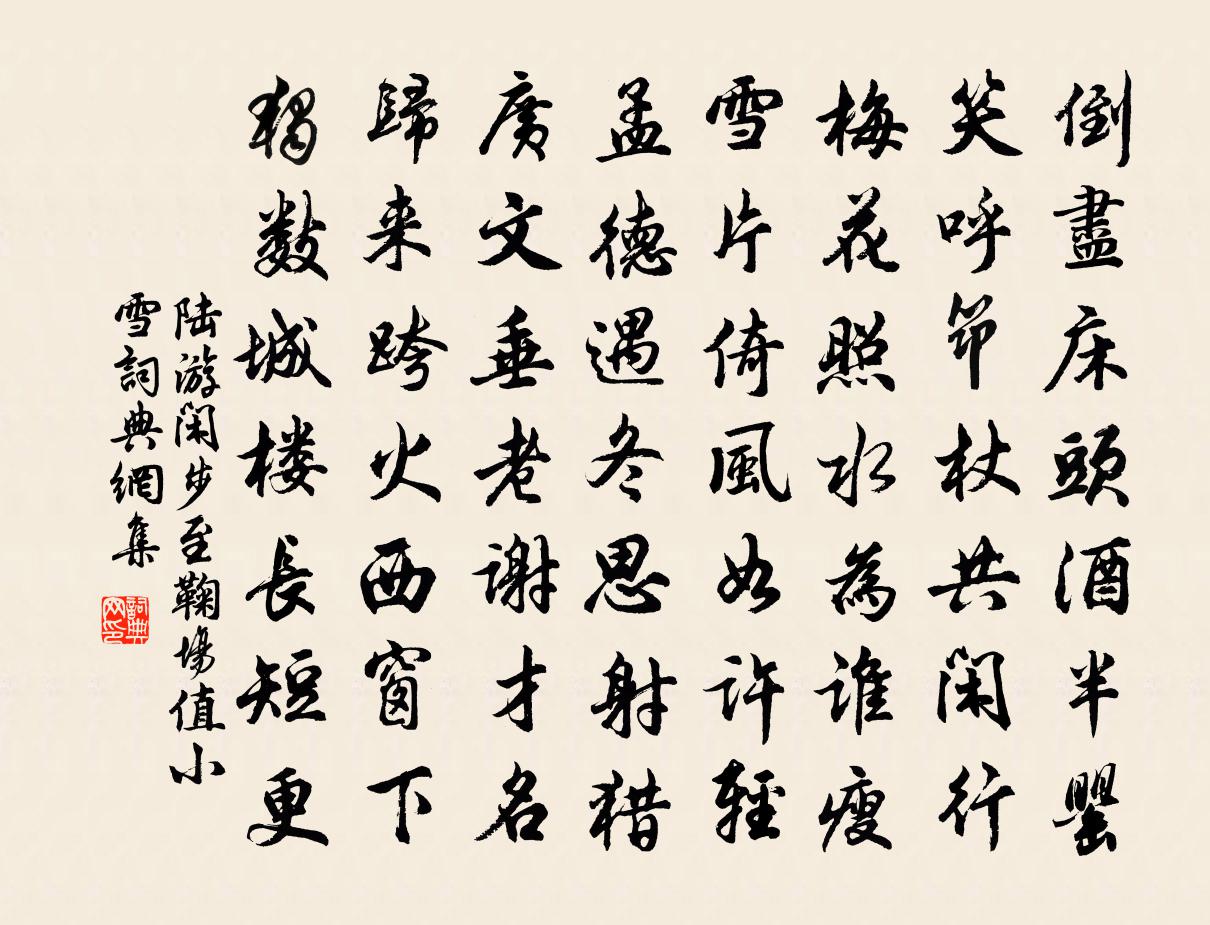 倒盡床頭酒半罌
笑呼筇杖共閑行
梅花照水為誰瘦
雪片倚風如許輕
孟德遇冬思射猎
廣文垂老謝才名
歸来跨火西窗下
獨數城楼長短更
陆游閑步至鞠場值小
雪詞典網集
詞典网印